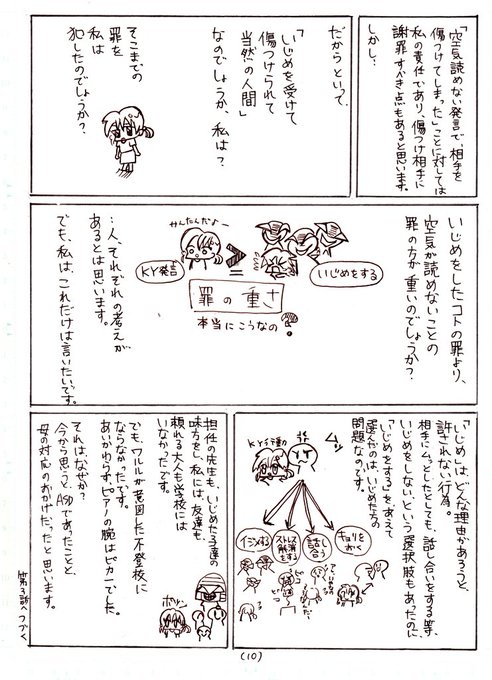 「空気読めない発言で、相手を
傷つけてしまった」ことに対しては
私の責任であり、傷つけ相手に
謝罪すべき点もあると思います。
しかし…
だからといって、
「いじめを受けて
傷つけられて
当然の人間」
なのでしょうか、私は？
そこまでの
罪を
私は
犯したのでしょうか？
いじめをしたコトの罪より、
空気が読めないことの
罪の方が重いのでしょうか？
いじめをする
≧
かんたんだよー
KY発言
罪の重さ
本当にこうなの？
…人、それぞれの考えが
あるとは思います。
でも、私は、これだけは言いたいです。
「いじめ」は、どんな理由があろうと、
許されない行為。
相手にムッとしたとしても、話し合いをする等、
いじめをしない、という選択肢もあったのに、
「いじめをする」をあえて
選んだのは、いじめた方の
問題なのです。
ムッ
KY言動
キョリを
おく
話し
合う
ストレス
解消
をする
イジメする
担任の先生も、いじめた子達の
味方をし、私には、友達も、
頼れる大人も学校には
いなかったです。
でも、ワルルが意図した不登校に
ならなかったです。
あいかわらず、ピアノの腕はピカ一でした。
それは、なぜか？
今から思うと、ASDであったことと、
母の対応のおかげだったと思います。
ポツン
第3話へつづく
(10)